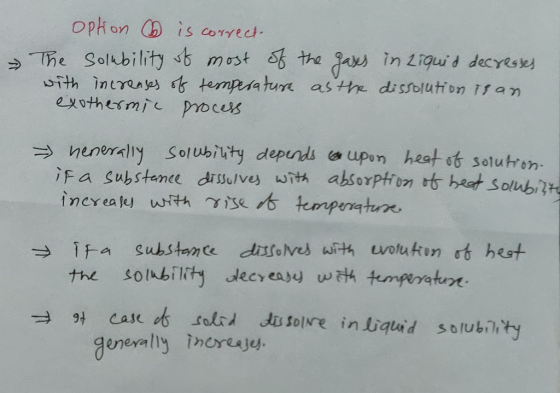 Option (b) is correct.
⇒ The Solubility of most of the gases in Liquid decreases
with increases of temperature as the dissolution is an
exothermic process
⇒ Generally Solubility depends upon heat of solution.
if a substance dissolves with absorption of heat solubility
increases with rise of temperature.
⇒ if a substance dissolves with evolution of heat
the solubility decreases with temperature.
⇒ It case of solid dissolve in liquid solubility
generally increases.